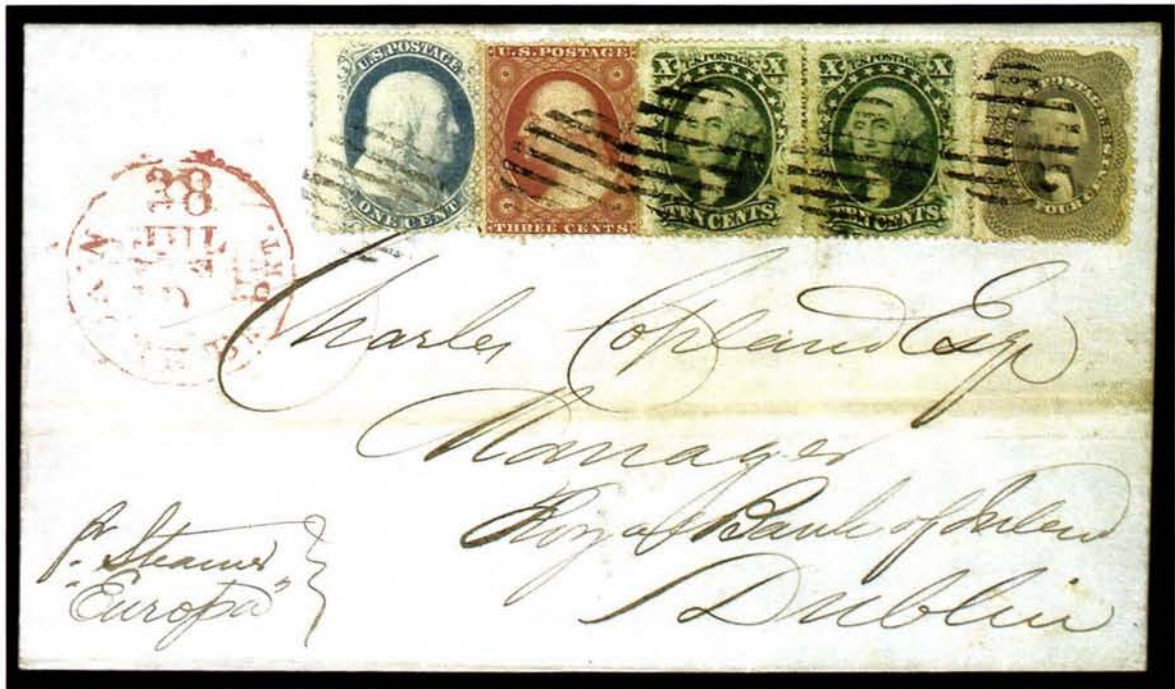 U.S. POSTAGE
ONE CENT
U.S. POSTAGE
THREE CENTS
X U.S. POSTAGE X
TEN CENTS
X U.S. POSTAGE X
TEN CENTS
POSTAGE
FOUR CENTS
38
Charles Copland Esqr
Manager
Royal Bank of Ireland
Dublin
pr Steamer
"Europa"